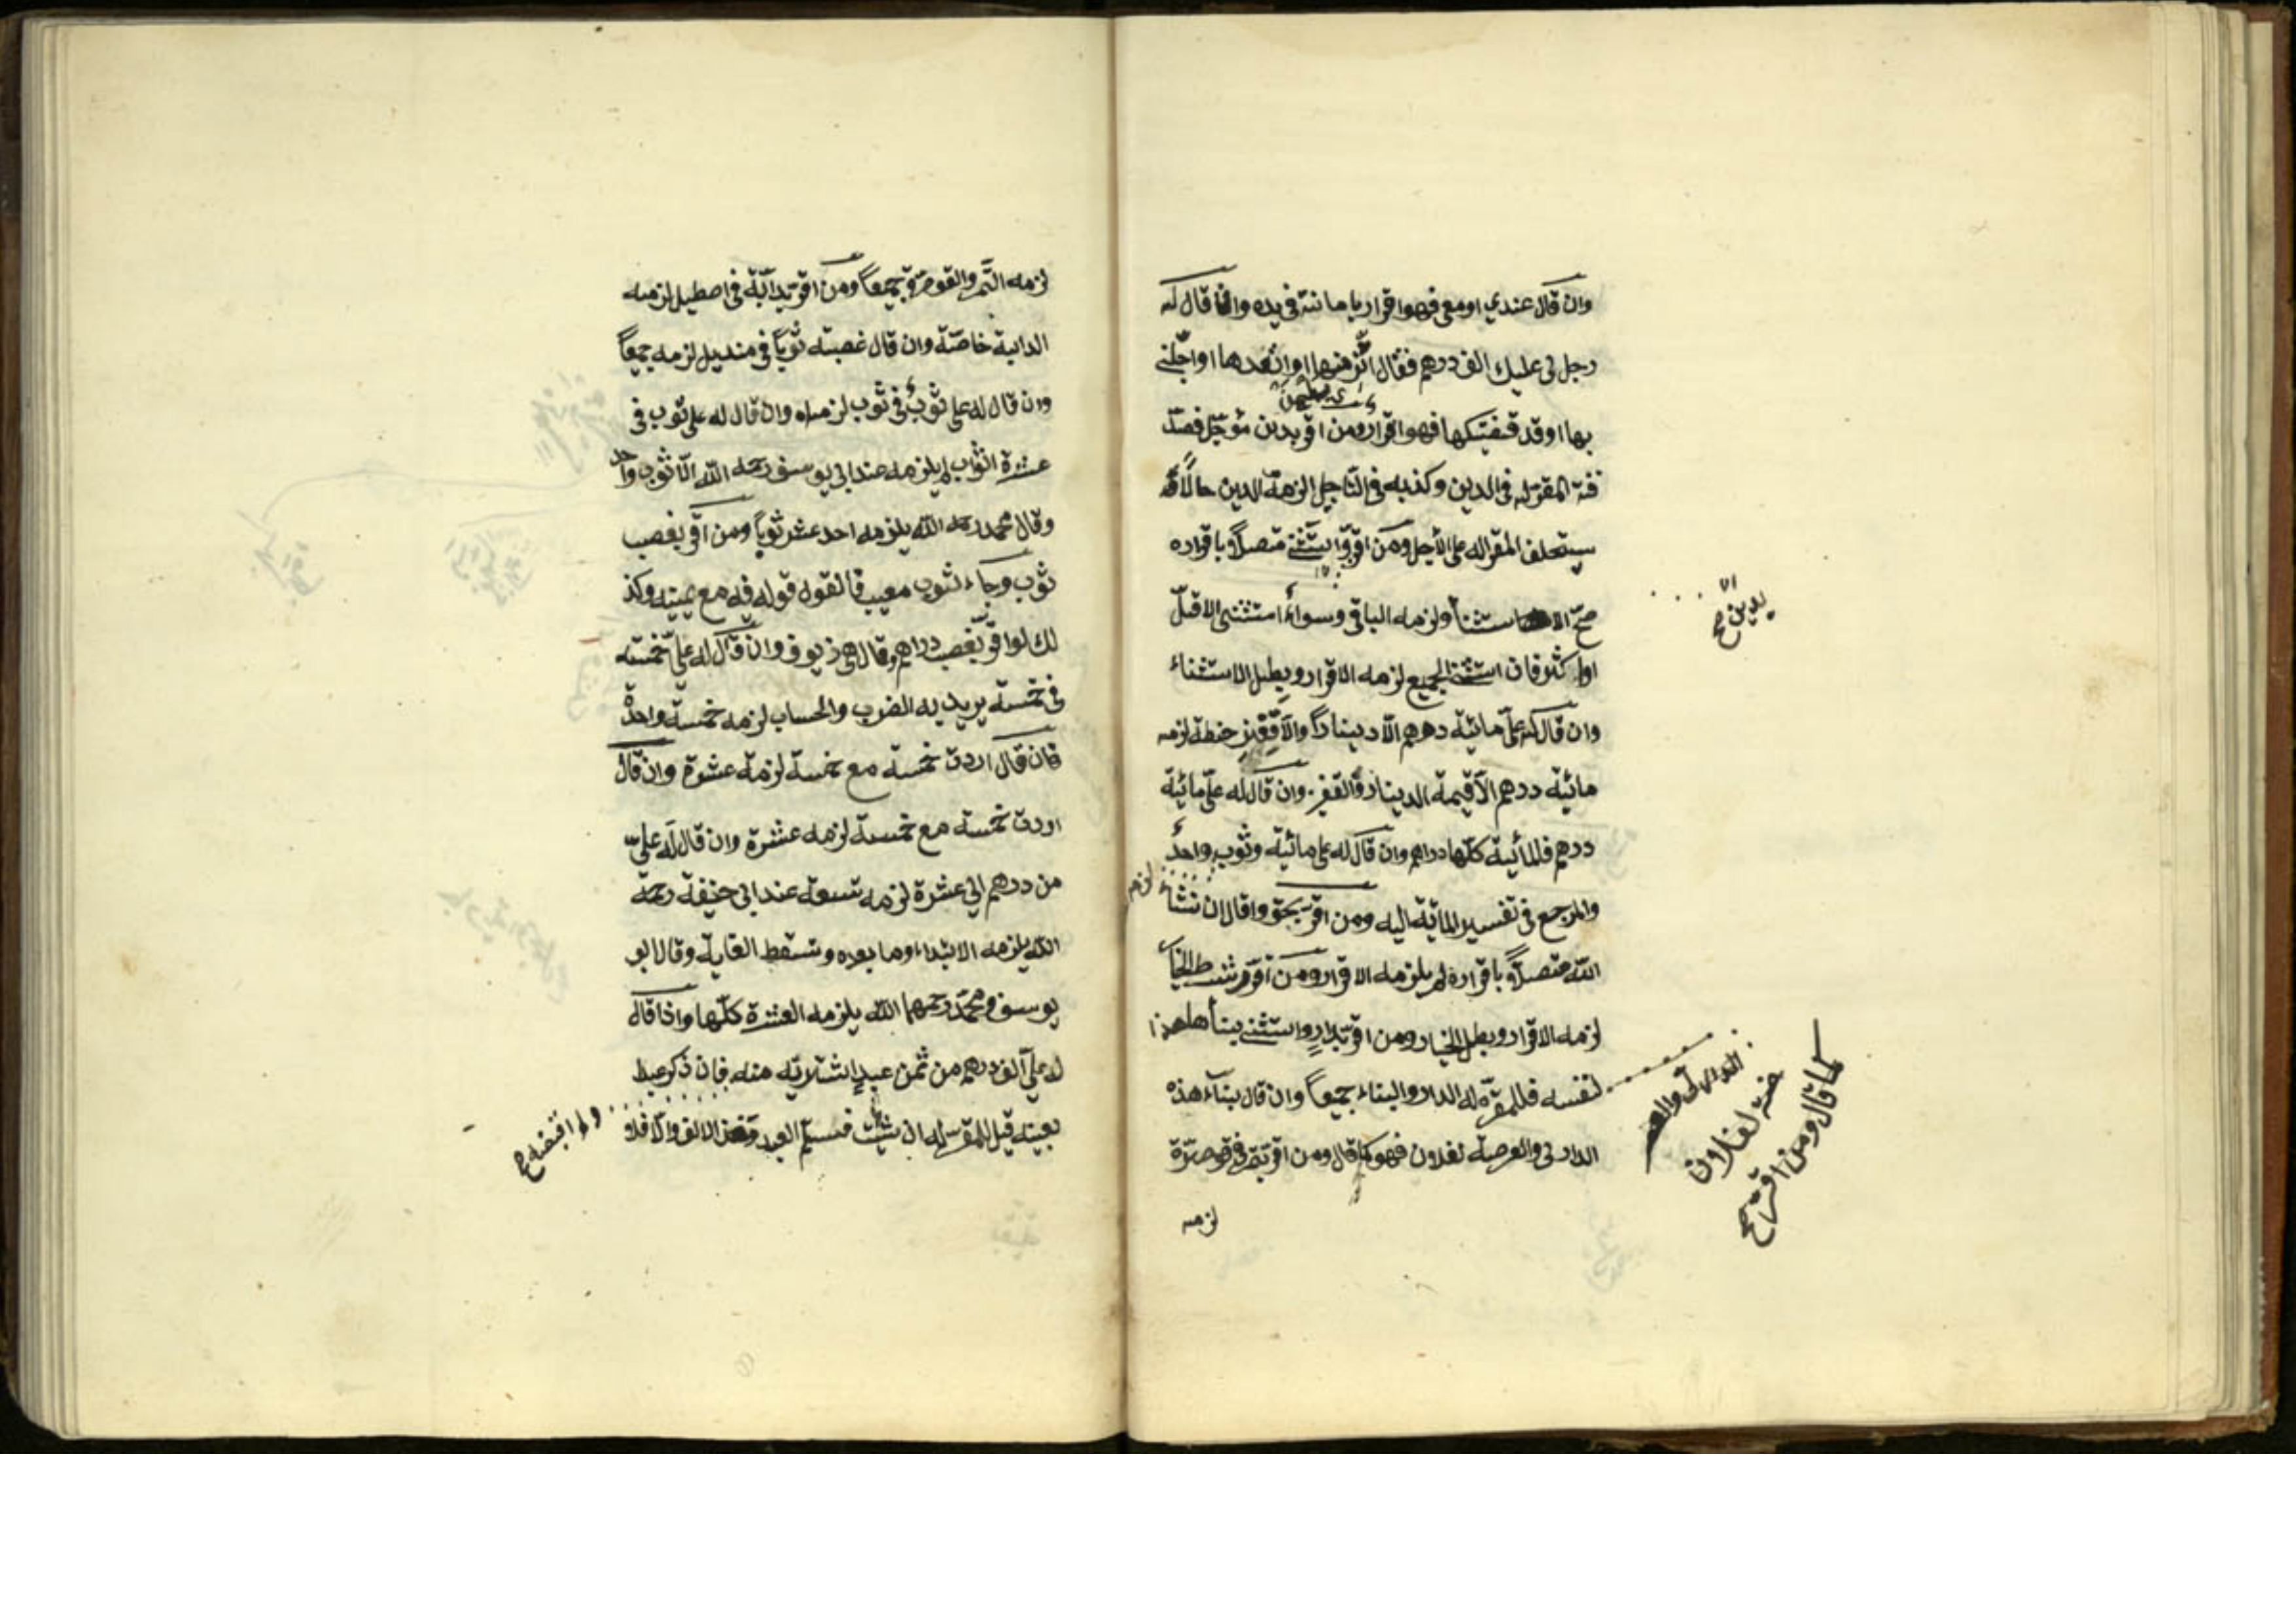 وان قال عندي او معي فهو اقرار بامانته في يده واذا قال له
رجل لي عليك الف درهم فقال اتزنها او انقدها او اجلني
بها او قد قضيتكها فهو اقرار ومن اقر بدين مؤجل فصد
قه المقر له في الدين وكذبه في التاجيل لزمه الدين حالا و
يستحلف المقر له على الاجل ومن اقر واستثنى متصلا باقراره
صح الاستثنا ولزمه الباقي وسواء استثنى الاقل
او اكثر فان استثنى الجميع لزمه الاقرار وبطل الاستثناء
وان قال له علي مائة درهم الا دينارا والا قفيز حنطة لزمه
مائية درهم الا قيمة الدينار والقفيز وان قال له علي مائية
درهم فالمائية كلها دراهم وان قال له علي مائية وثوب واحد
لزمه
والمرجع في تفسير المائة اليه ومن اقر بحق وقال ان شاء
الله متصلا باقراره لم يلزمه الاقرار ومن اقر شرط الخيا
لزمه الاقرار وبطل الخيار ومن اقر بدار واستثنى بنأها هذا
لنفسه فللمقر له الدار والبناء جميعا وان قال بناء هذه
الدار لي والعرصة لفلان فهو كما قال ومن اقر بتمر في قوصرة
لزمه
بدين صح
الدار لي والعر
صة لفلان
كما قال ومن اقر صح
لزمه التمر والقوصرة جميعا ومن اقر بدابة في اصطبل لزمه
الدابة خاصة وان قال غصبته ثوبا في منديل لزمه جميعا
وان قال له علي ثوب في ثوب لزماه وان قال له علي ثوب في
عشرة اثواب لم يلزمه عند ابي يوسف رحمه الله الا ثوب واحد
وقال محمد رحمه الله يلزمه احد عشر ثوبا ومن اقر بغصب
ثوب وجاء بثوب معيب فالقول قوله فيه مع يمينه وكذ
لك لو اقر بغصب دراهم وقال هي زيوف وان قال له علي خمسة
في خمسة يريد به الضرب والحساب لزمه خمسة واحدة
فان قال اردت خمسة مع خمسة لزمه عشرة وان قال
اردت خمسة مع خمسة لزمه عشرة وان قال له علي
من درهم الي عشرة لزمه تسعة عند ابي حنيفة رحمة
الله يلزمه الابتداء وما بعده وتسقط الغاية وقال ابو
يوسف ومحمد رحمهما الله يلزمه العشرة كلها واذا قال
له علي الف درهم من ثمن عبد اشتريته منه فان ذكر عبدا
بعينه قيل للمقر له ان شئت فسلم العبد وخذ الالف والا فلا
ولم اقبضه صح